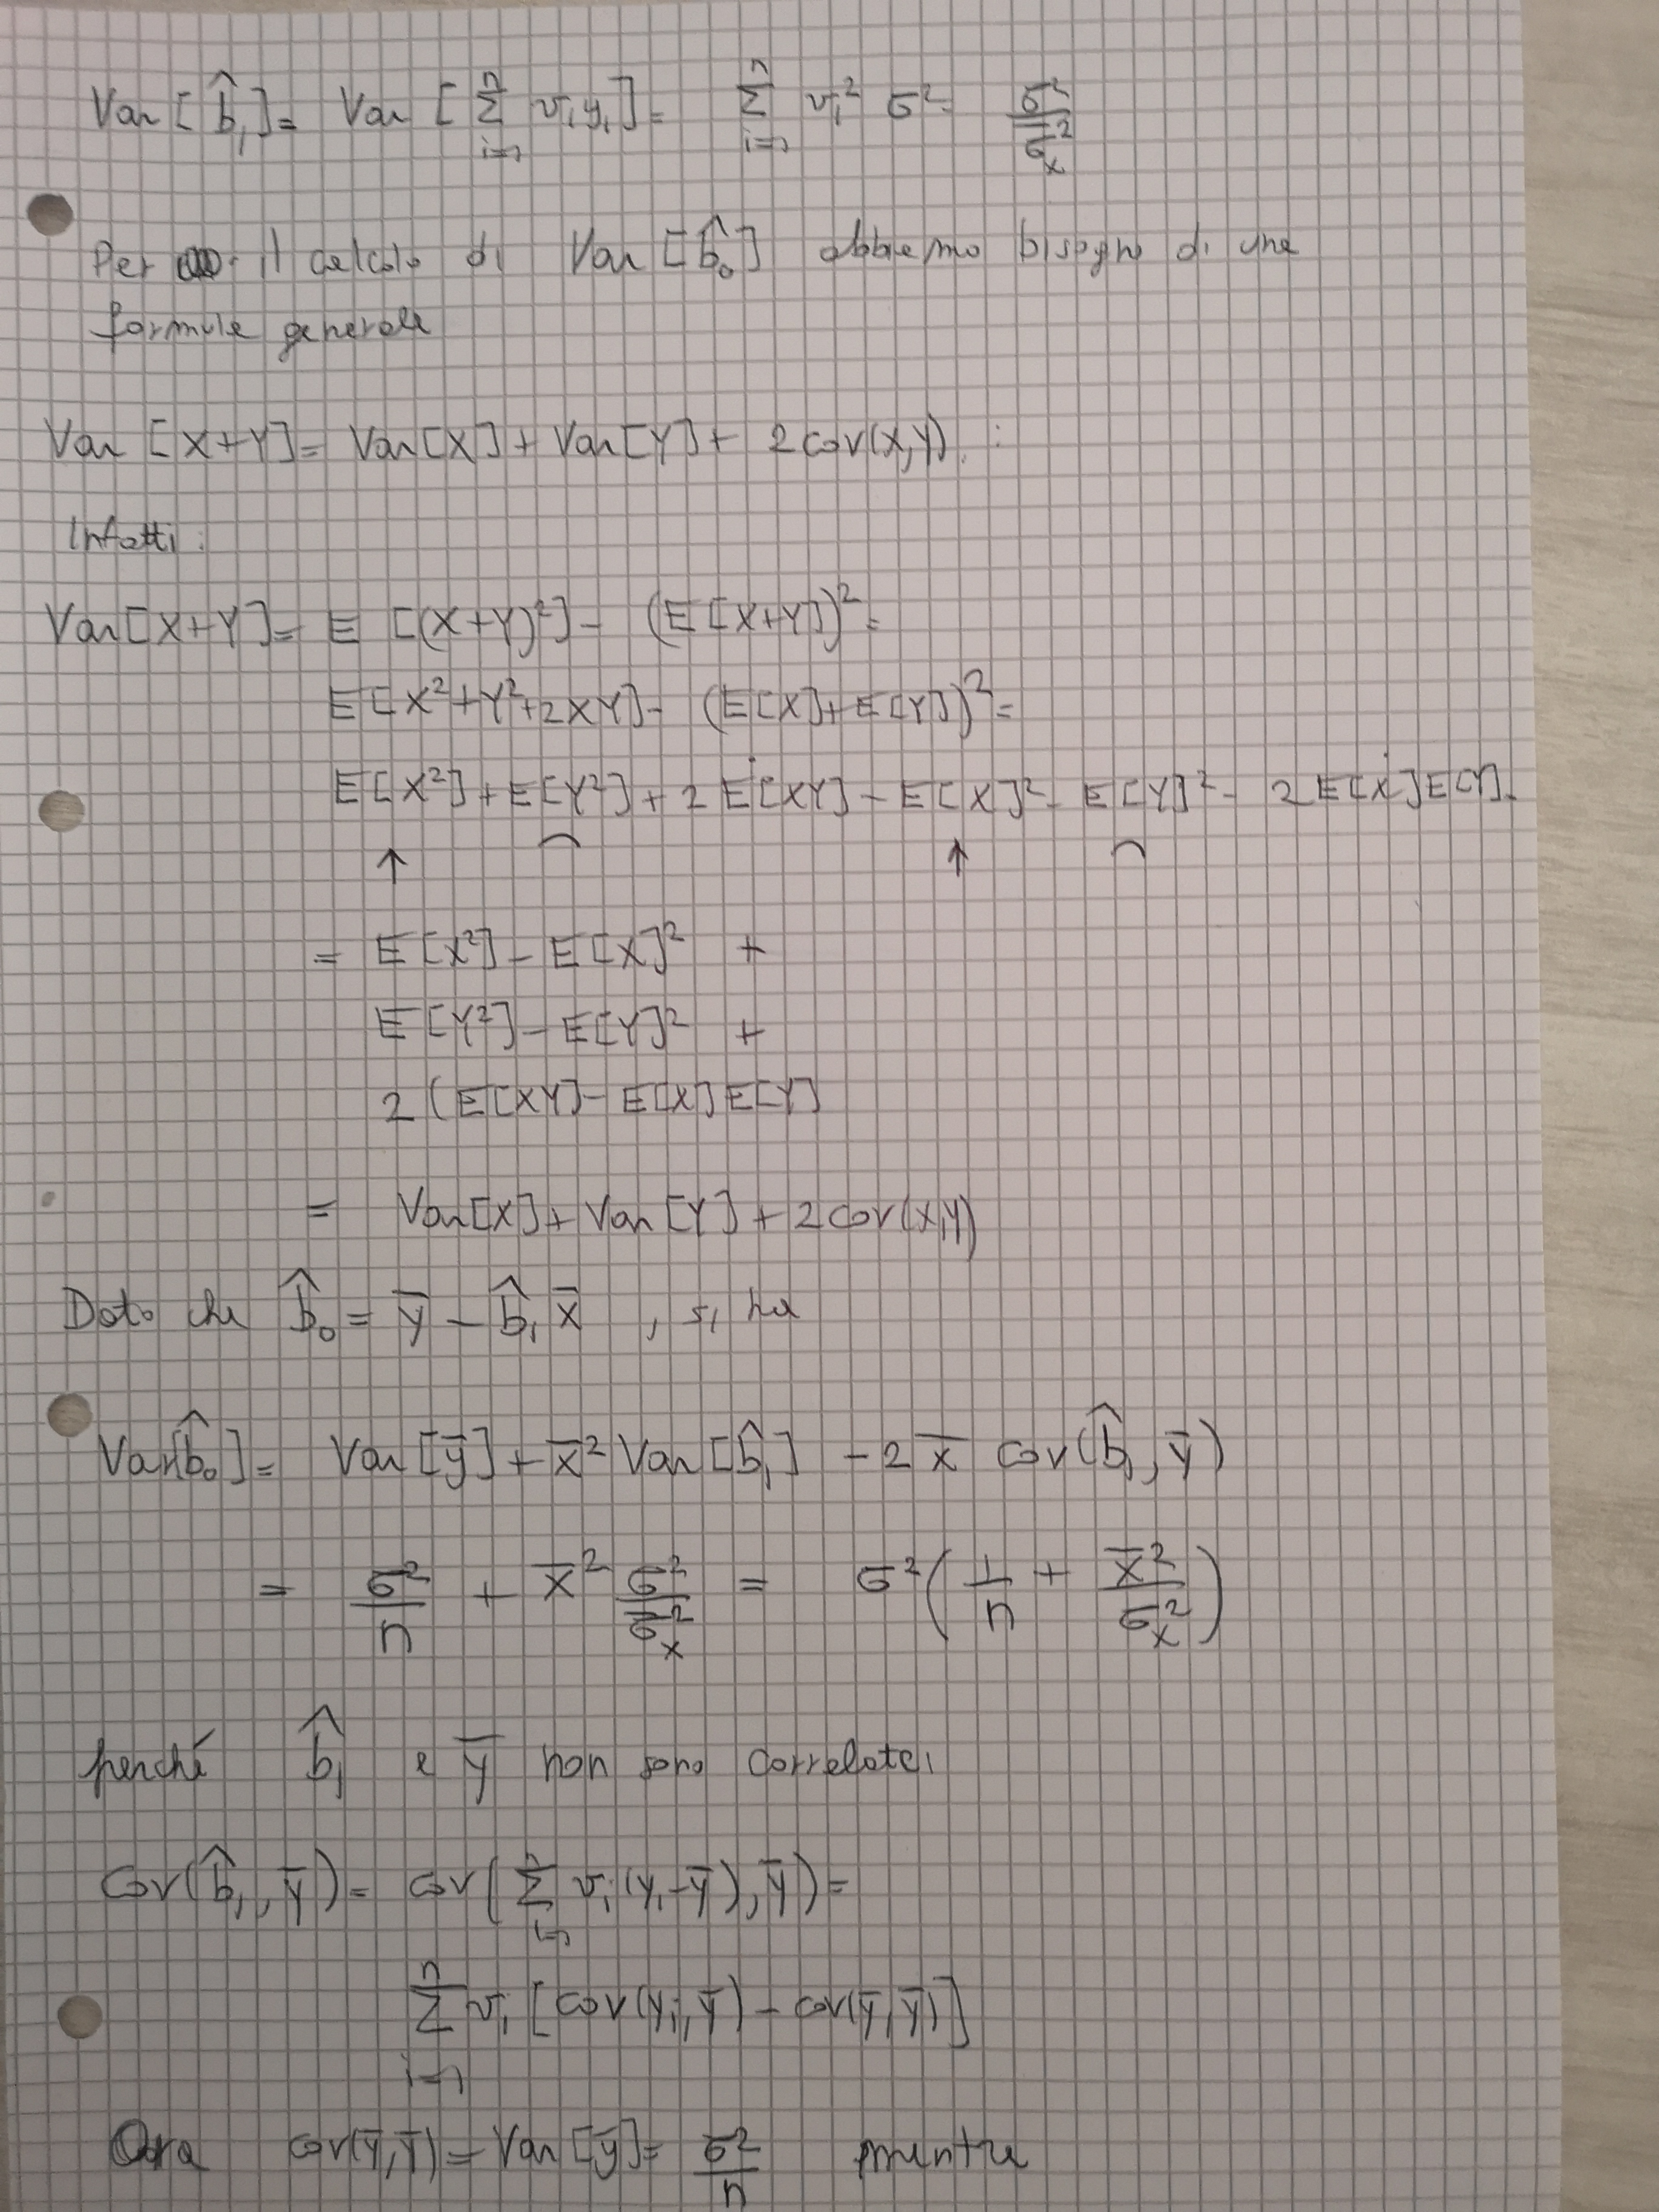 Var [b̂₁] = Var [Σᵢ₌₁ⁿ vᵢyᵢ] = Σᵢ₌₁ⁿ vᵢ² σ² = σ²/σ̄ₓ²
Per il calcolo di Var [b̂₀] abbiamo bisogno di una
formula generale
Var [X+Y] = Var[X] + Var[Y] + 2cov(X,Y) :
Infatti:
Var[X+Y] = E [(X+Y)²] - (E[X+Y])² =
E[X²+Y²+2XY] - (E[X]+E[Y])² =
E[X²]+E[Y²]+2E[XY] - E[X]² - E[Y]² - 2E[X]E[Y] =
= E[X²] - E[X]² +
E[Y²] - E[Y]² +
2(E[XY] - E[X]E[Y]
= Var[X] + Var[Y] + 2cov(X,Y)
Dato che b̂₀ = ȳ - b̂₁ x̄ , si ha
Var[b̂₀] = Var[ȳ] + x̄² Var[b̂₁] - 2x̄ cov(b̂₁, ȳ)
= σ²/n + x̄² σ²/σ̄ₓ² = σ²(1/n + x̄²/σ̄ₓ²)
perché b̂₁ e ȳ non sono correlate:
Cov(b̂₁, ȳ) = cov(Σᵢ₌₁ⁿ vᵢ(yᵢ-ȳ), ȳ) =
Σᵢ₌₁ⁿ vᵢ [cov(yᵢ, ȳ) - cov(ȳ, ȳ)]
Ora cov(ȳ, ȳ) = Var[ȳ] = σ²/n mentre